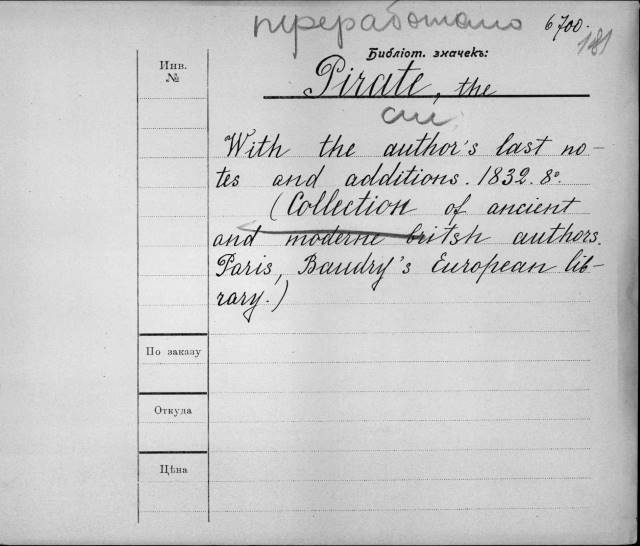 переработано
6700.
181
Библіот. значекъ:
Инв.
№
Pirate, the
см.
With the author's last no-
tes and additions. 1832. 8º.
(Collection of ancient
and moderne britsh authors.
Paris, Baudry's European lib-
rary.)
По заказу
Откуда
Цѣна